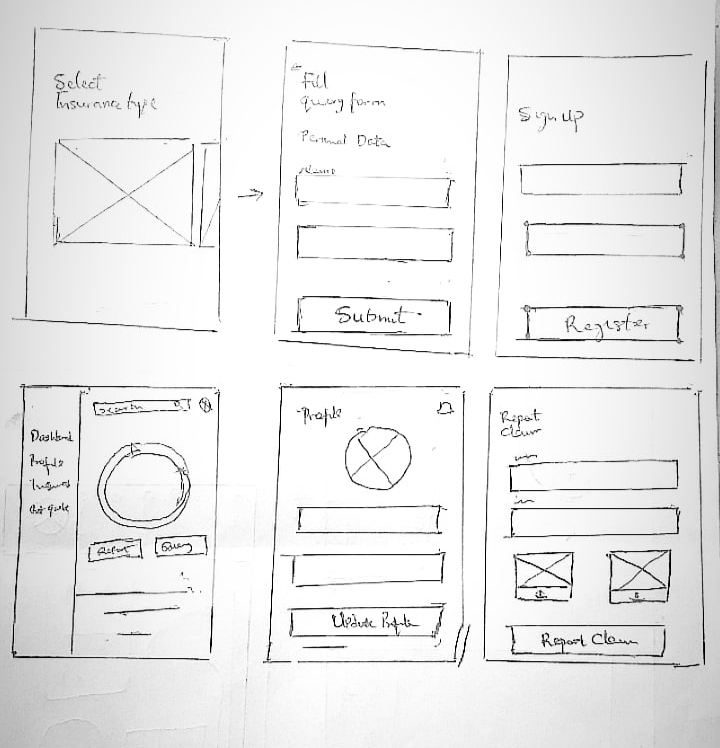 Select
Insurance type
Fill
query form
Personal Data
Name
Submit
Sign up
Register
Search
Dashboard
Profile
Get quote
Report
Profile
Update Profile
Report
Claim
Report Claim